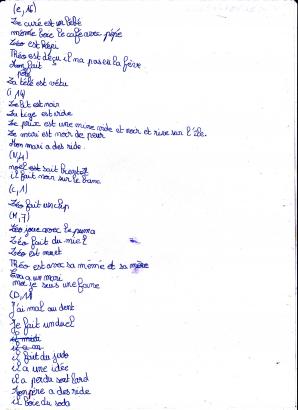 (e, 16)
Le curé est un bébé
mémé boie le café avec pépé
Léo est képi
Théo est déçu il na pas eu la fève
Mon fait
La télé est vétu
(i, 14)
Le lit est noir
La tige est ride
Le prix est une mine ride et noir et rise sur l'île.
Le mari est noir de peur
Mon mari a des ride.
noel est sait bientot
il fait noir sur le banc
(c, 1)
Léo fait un clip
(M, 7)
Léo joue avec le puma
Léo fait du miel
Léo est muet
Théo est avec sa mémé et sa mère
Eva a un mari
moi je suis une fane
(D, 11)
J'ai mal au dent
Je fait un duel
il fait du judo
il a une idée
il a perdu sont lard
Mon père a des ride
il boie du soda